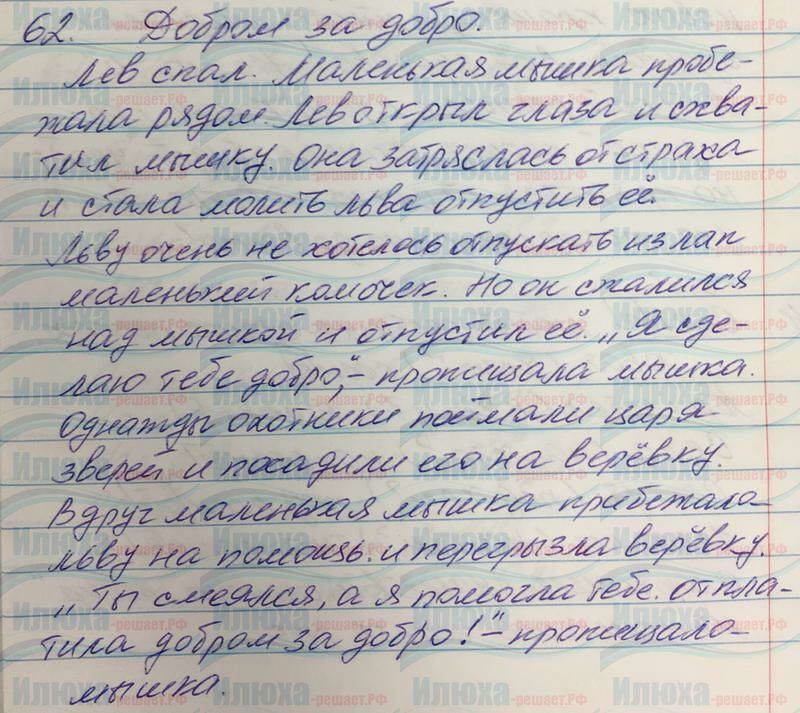 62. Добром за добро.
Лев спал. Маленькая мышка пробе-
жала рядом. Лев открыл глаза и схва-
тил мышку. Она затряслась от страха
и стала молить льва отпустить её.
Льву очень не хотелось отпускать из лап
маленький комочек. Но он сжалился
над мышкой и отпустил её. „Я сде-
лаю тебе добро," – пропищала мышка.
Однажды охотники поймали царя
зверей и посадили его на верёвку.
Вдруг маленькая мышка прибежала
льву на помощь. и перегрызла верёвку.
„Ты смеялся, а я помогла тебе. отпла-
тила добром за добро!" – пропищала
мышка.
Илюха-решает.РФ